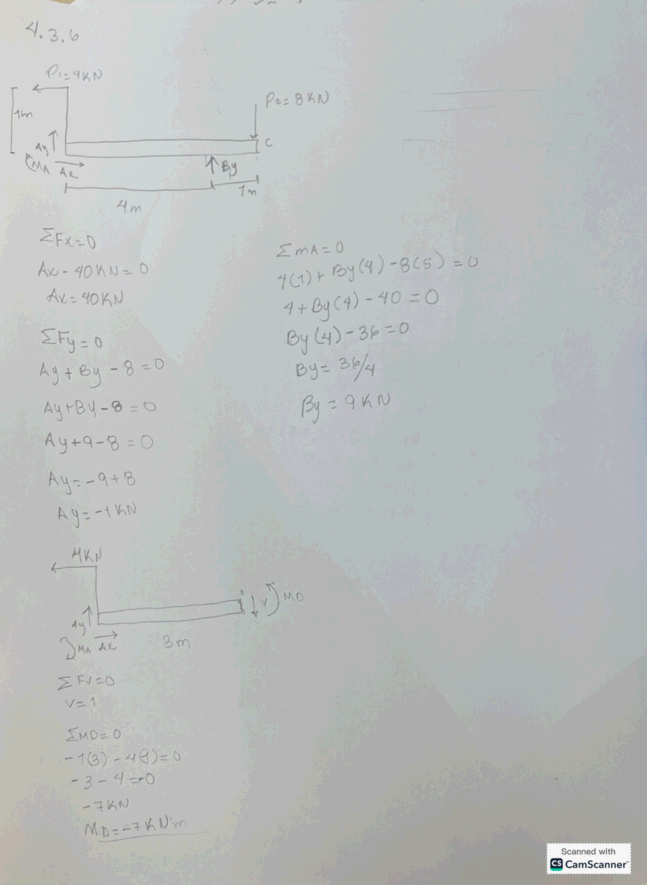 4.3.6
P1=4KN
P2=8KN
1m
Ay
C
MA Ax
By
4m
1m
ΣFx=0
Ax-40KN=0
Ax=40KN
ΣFy=0
Ay+By-8=0
Ay+By-8=0
Ay+9-8=0
Ay=-9+8
Ay=-1KN
ΣmA=0
4(1)+By(4)-8(5)=0
4+By(4)-40=0
By(4)-36=0
By=36/4
By=9KN
4KN
V MD
Ay
MA Ax
3m
ΣFV=0
V=1
ΣMD=0
-1(3)-4(1)=0
-3-4=0
-7KN
MD=-7KN·m
Scanned with
CS CamScanner